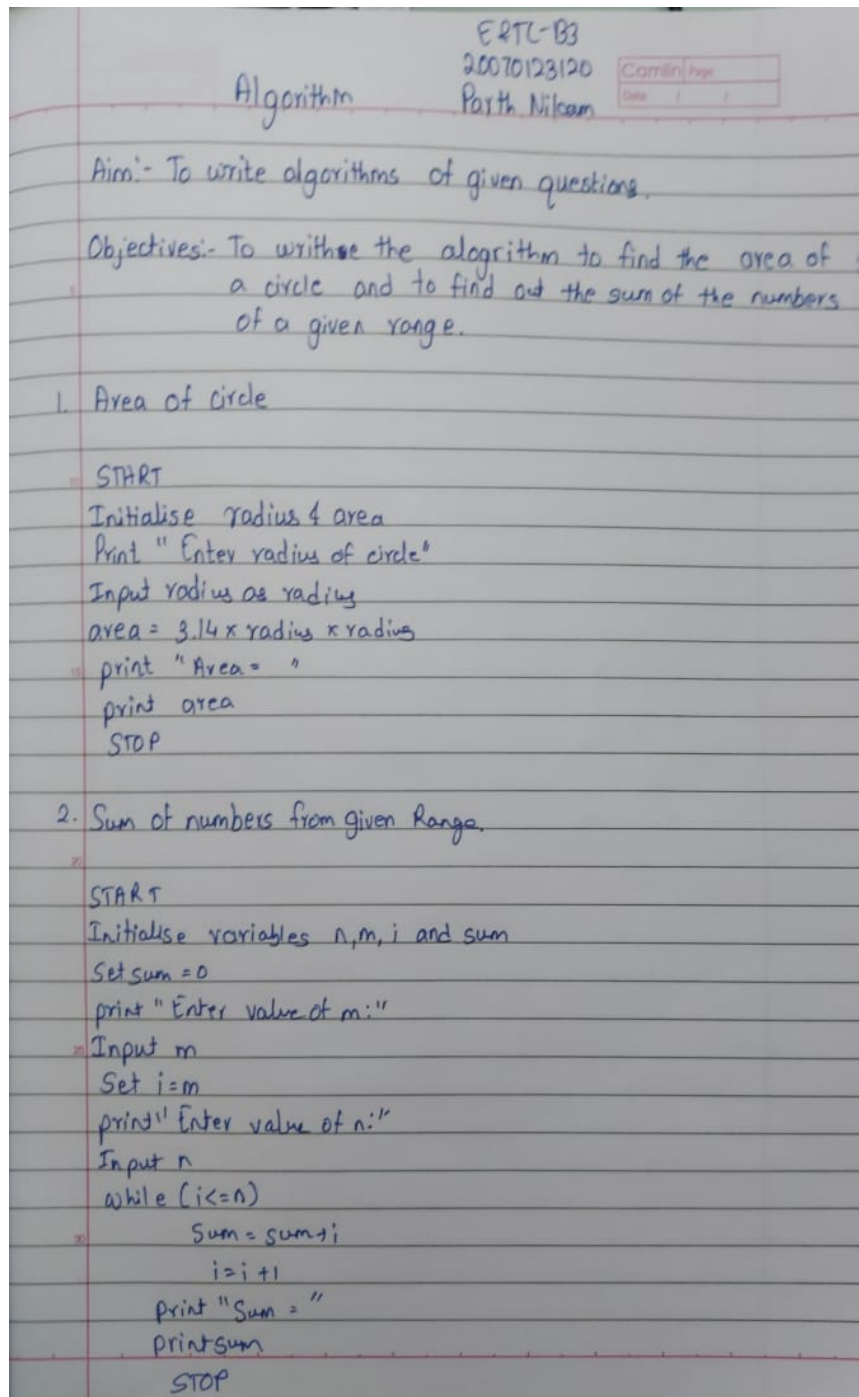 E&TC-B3
20070123120
Camlin Page
Date / /
Algorithm
Parth
Aim:- To write algorithms of given questions.
Objectives:- To writhe the alogrithm to find the area of
a circle and to find out the sum of the numbers
of a given range.
1. Area of circle
START
Initialise radius & area
Print "Enter radius of circle"
Input radius as radius
area = 3.14 x radius x radius
print "Area = "
print area
STOP
2. Sum of numbers from given Range.
20
START
Initialise variables n, m, i and sum
Set sum = 0
print "Enter value of m:"
25 Input m
Set i=m
print "Enter value of n:"
Input n
while (i<=n)
30 Sum = sum+i
i=i+1
print "Sum = "
print sum
STOP